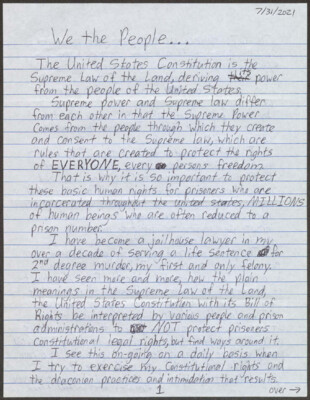 7/31/2021
We the People...
The United States Constitution is the
Supreme Law of the Land, deriving its power
from the people of the United States.
Supreme power and Supreme law differ
from each other in that the Supreme Power
comes from the people through which they create
and consent to the Supreme law, which are
rules that are created to protect the rights
of EVERYONE, every persons freedom.
That is why it is so important to protect
these basic human rights for prisoners who are
incarcerated throughout the united states, MILLIONS
of human beings who are often reduced to a
prison number.
I have become a jailhouse lawyer in my
over a decade of serving a life sentence for
2nd degree murder, my first and only felony.
I have seen more and more, how the plain
meanings in the Supreme Law of the Land,
the United States Constitution with its Bill of
Rights be interpreted by various people and prison
administrations to NOT protect prisoners
constitutional legal rights, but find ways around it.
I see this on-going on a daily basis when
I try to exercise my Constitutional rights and
the draconian practices and intimidation that results.
1
over →